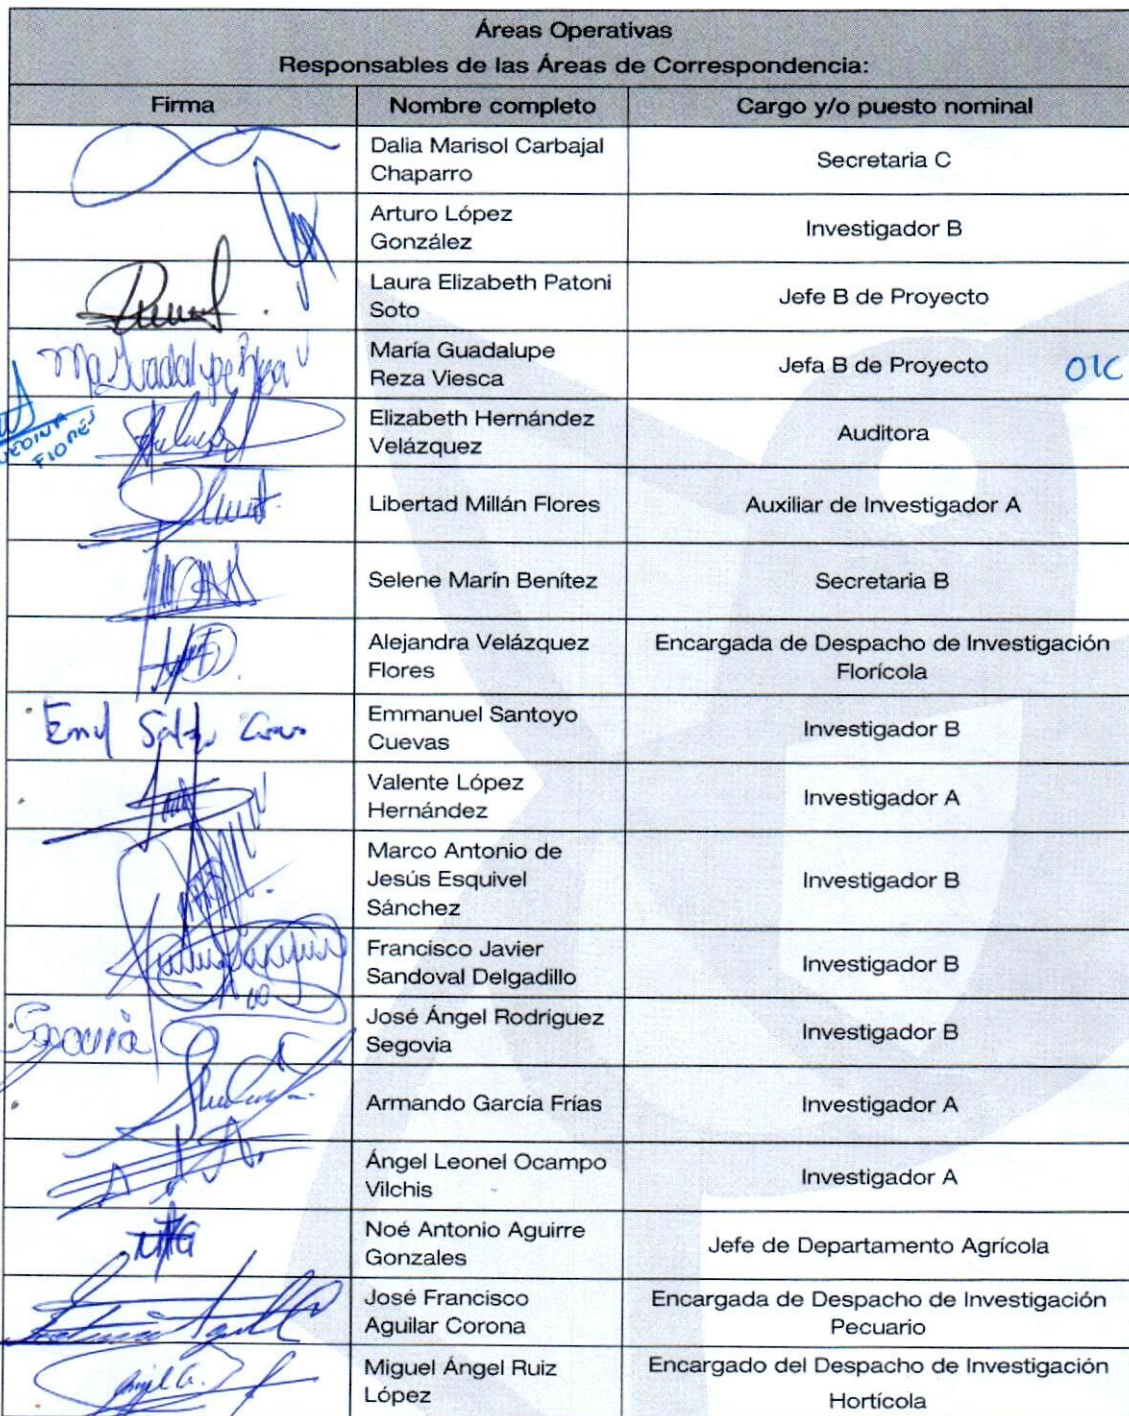 Áreas Operativas
Responsables de las Áreas de Correspondencia:
Firma Nombre completo Cargo y/o puesto nominal
Dalia Marisol Carbajal
Chaparro
Secretaria C
Arturo López
González
Investigador B
Laura Elizabeth Patoni
Soto
Jefe B de Proyecto
Ma Guadalupe Reza V
María Guadalupe
Reza Viesca
Jefa B de Proyecto OIC
MEDINA
FLORES
Elizabeth Hernández
Velázquez
Auditora
Libertad Millán Flores Auxiliar de Investigador A
Selene Marín Benítez Secretaria B
Alejandra Velázquez
Flores
Encargada de Despacho de Investigación
Florícola
Emmanuel Santoyo
Cuevas
Investigador B
Valente López
Hernández
Investigador A
Marco Antonio de
Jesús Esquivel
Sánchez
Investigador B
Francisco Javier
Sandoval Delgadillo
Investigador B
José Ángel Rodríguez
Segovia
Investigador B
Armando García Frías Investigador A
Ángel Leonel Ocampo
Vilchis
Investigador A
Noé Antonio Aguirre
Gonzales
Jefe de Departamento Agrícola
José Francisco
Aguilar Corona
Encargada de Despacho de Investigación
Pecuario
Miguel Ángel Ruiz
López
Encargado del Despacho de Investigación
Hortícola